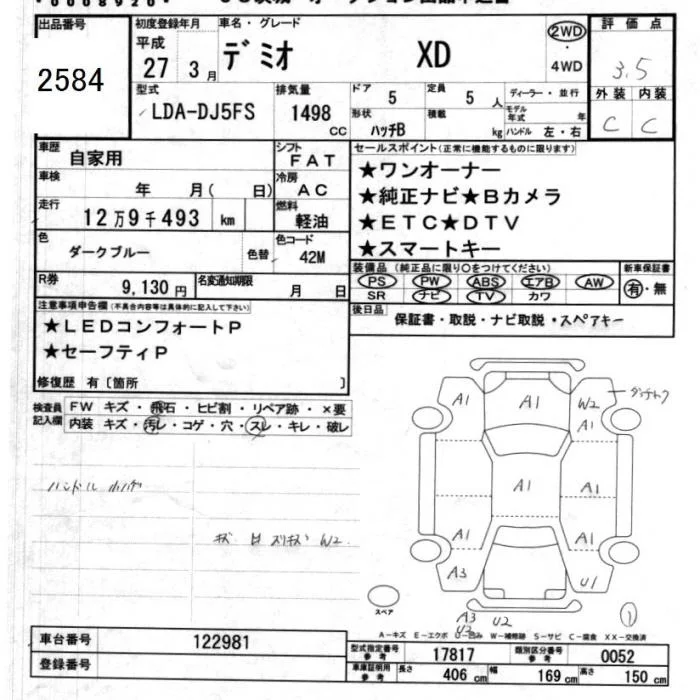 出品番号 初度登録年月 車名・グレード 2WD 評価点
2584 平成 27 3月 デミオ XD ・ 4WD 3.5
型式 排気量 ドア 5 定員 5人 ディーラー・並行 外装 内装
LDA-DJ5FS 1498 CC 形状 ハッチB 積載 kg モデル年式 年 ハンドル 左・右 C C
車歴 自家用 シフト FAT セールスポイント(正常に機能するものに限ります)
車検 年 月( 日) 冷房 AC ★ワンオーナー
走行 12万9千493 km 燃料 軽油 ★純正ナビ★Bカメラ
★ETC★DTV
色 ダークブルー 色替 色コード 42M ★スマートキー
R券 9,130円 名変通知期限 月 日 装備品(純正品に限り○をつけてください) 新車保証書
PS PW ABS エアB AW 有・無
SR ナビ TV カワ
注意事項申告欄(不具合内容等は具体的に記入して下さい) 後日品 保証書・取説・ナビ取説・スペアキー
★LEDコンフォートP
★セーフティP
修復歴 有〔箇所 〕
検査員記入欄 FW キズ・飛石・ヒビ割・リペア跡・×要
内装 キズ・汚レ・コゲ・穴・スレ・キレ・破レ
A1 A1 W2
A1
A1 A1
A1 A1
A3 U1
スペア A3 U2 ①
U2
A-キズ E-エクボ U-凹み W-補修跡 S-サビ C-腐食 XX-交換済
車台番号 122981 型式指定番号 参考 17817 類別区分番号 参考 0052
登録番号 車庫証明用 参考 長さ 406 cm 幅 169 cm 高さ 150 cm